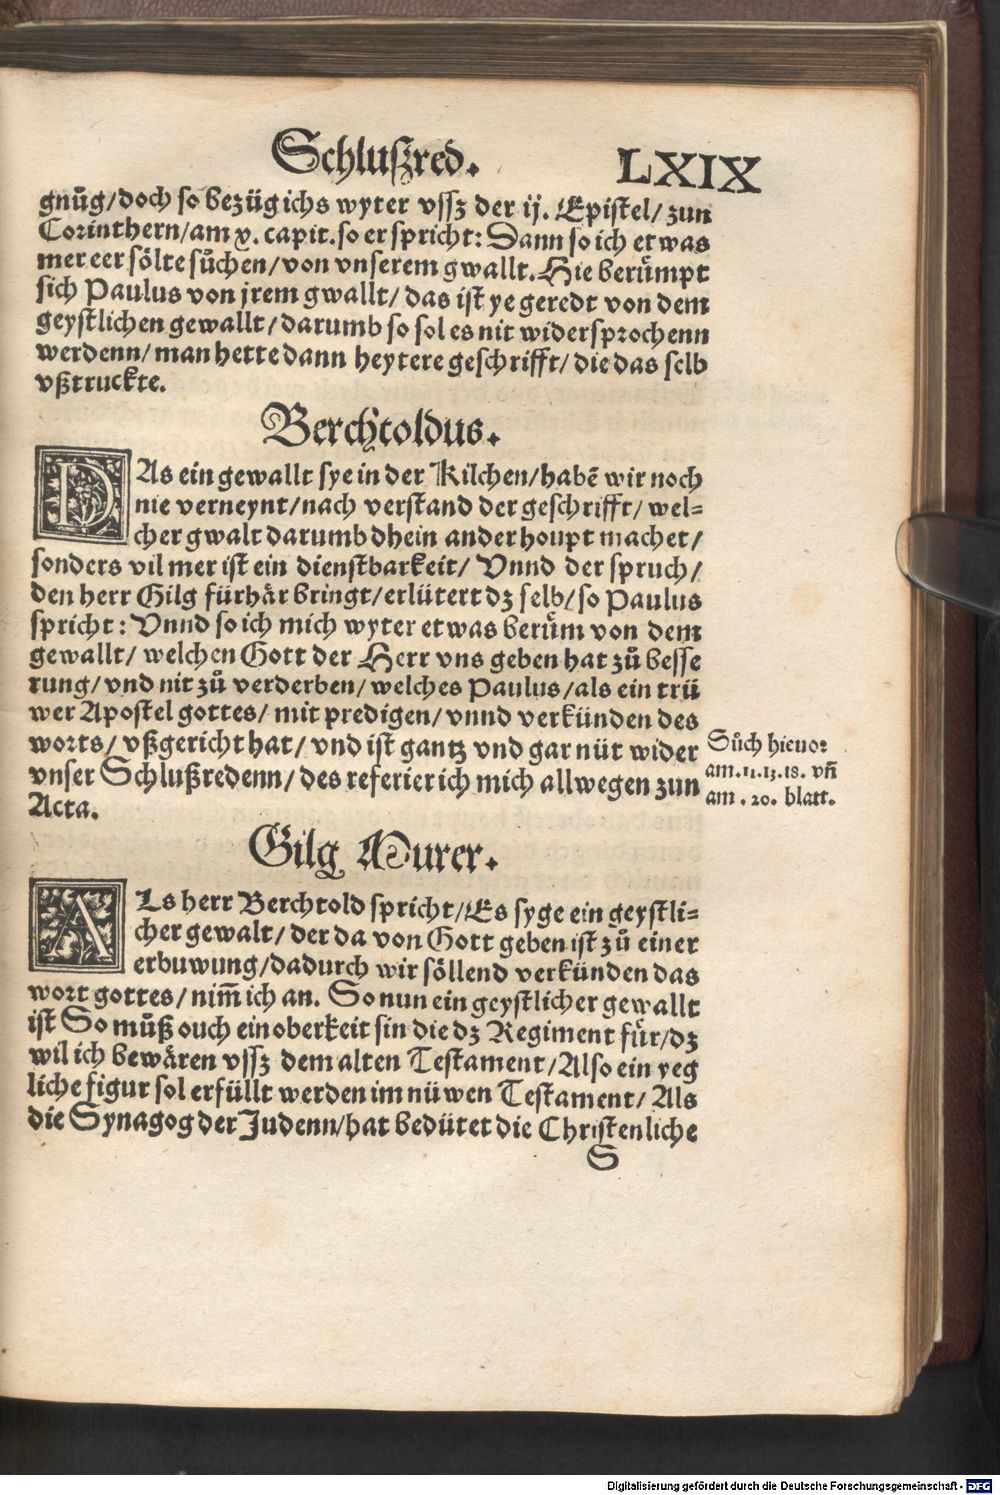 Schlußred. LXIX
gnůg/doch so bezüg ichs wyter vssz der ij. Epistel/ zun
Corinthern/am x. capit. so er spricht: Dann so ich etwas
mer eer sölte sůchen/von vnserem gwallt. Hie berůmpt
sich Paulus von jrem gwallt/ das ist ye geredt von dem
geystlichen gewallt/darumb so sol es nit widersprochenn
werdenn/man hette dann heytere geschrifft/ die das selb
vßtruckte.
Berchtoldus.
DAs ein gewallt sye in der Kilchen/habē wir noch
nie verneynt/nach verstand der geschrifft/ wel-
cher gwalt darumb dhein ander houpt machet/
sonders vil mer ist ein dienstbarkeit/ Vnnd der spruch/
den herr Gilg fürhär bringt/erlütert dz selb/so Paulus
spricht: Vnnd so ich mich wyter etwas berům von dem
gewallt/ welchen Gott der Herr vns geben hat zů besse
rung/vnd nit zů verderben/welches Paulus/als ein trü
wer Apostel gottes/ mit predigen/vnnd verkünden des
worts/ vßgericht hat/ vnd ist gantz vnd gar nüt wider
vnser Schlußredenn/des referier ich mich allwegen zun
Acta.
Sůch hieuor
am.11.13.18. vñ
am . 20. blatt.
Gilg Murer.
ALs herr Berchtold spricht/Es syge ein geystli-
cher gewalt/der da von Gott geben ist zů einer
erbuwung/dadurch wir söllend verkünden das
wort gottes/nim̄ ich an. So nun ein geystlicher gewallt
ist So můß ouch ein oberkeit sin die dz Regiment für/dz
wil ich bewären vssz dem alten Testament/Also ein yeg
liche figur sol erfüllt werden im nüwen Testament/ Als
die Synagog der Judenn/hat bedütet die Christenliche
S
Digitalisierung gefördert durch die Deutsche Forschungsgemeinschaft - DFG